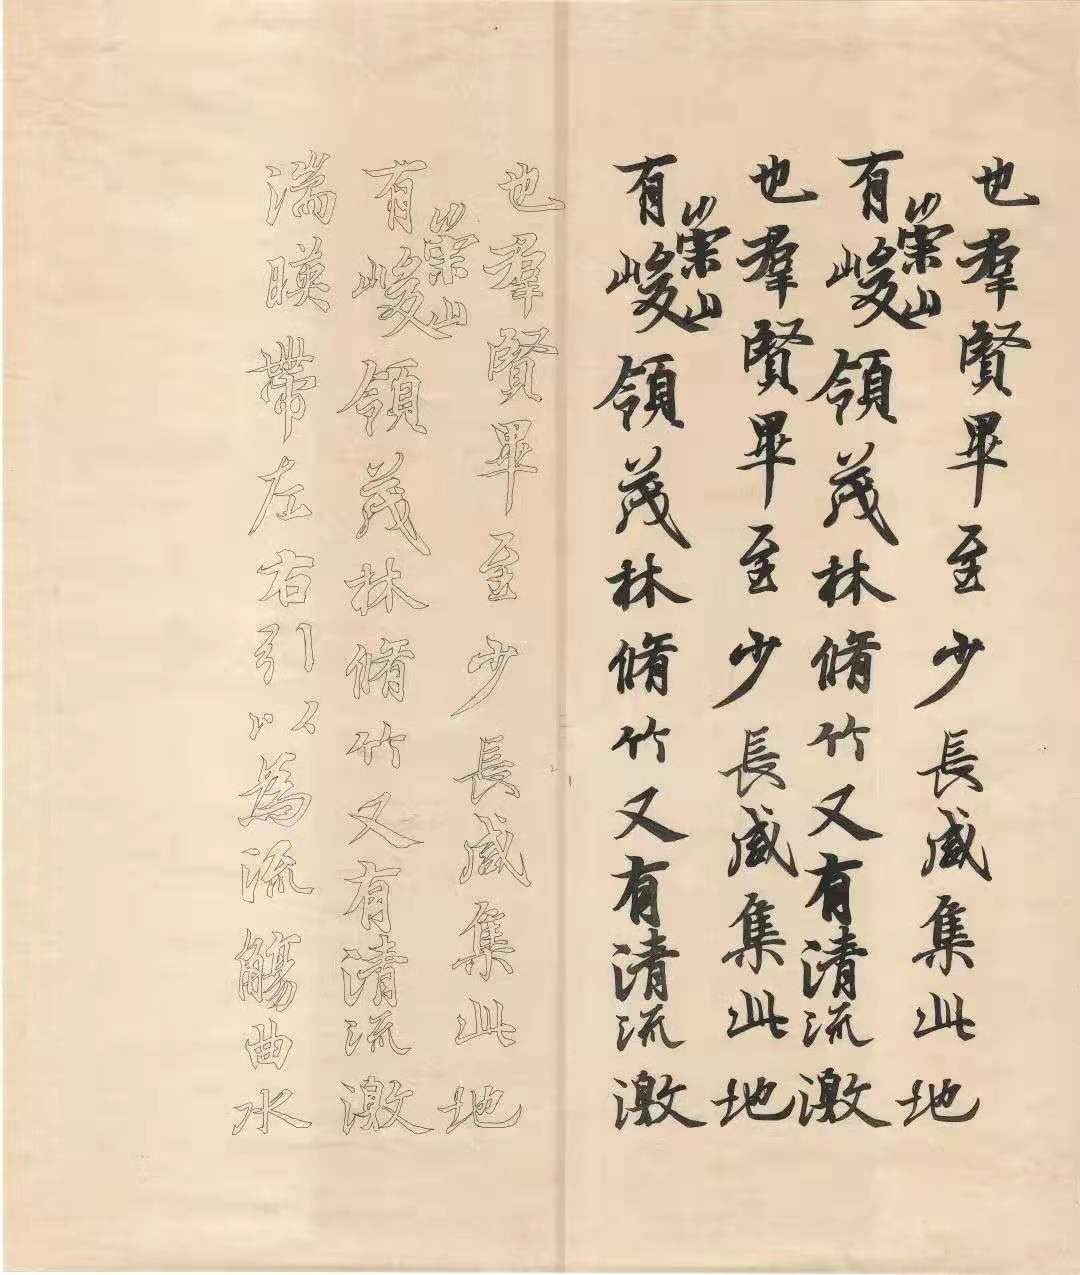 也羣賢畢至少長咸集此地
有崇山峻領茂林脩竹又有清流激
也羣賢畢至少長咸集此地
有崇山峻領茂林脩竹又有清流激
也羣賢畢至少長咸集此地
有崇山峻領茂林脩竹又有清流激
湍暎帶左右引以為流觴曲水